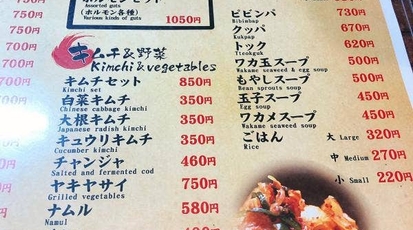 ホルモンセット
Assorted guts
(ホルモン各種)
Various kinds of guts
1050円
キムチ&野菜
Kimchi&vegetables
キムチセット 850円
Kimchi set
白菜キムチ 350円
Chinese cabbage kimchi
大根キムチ 350円
Japanese radish kimchi
キュウリキムチ 350円
Cucumber kimchi
チャンジャ 460円
Salted and fermented cod
ヤキヤサイ 750円
Grilled vegetables
ナムル 580円
Namul
ビビンバ 730円
Bibimbap
クッパ 670円
Kukpap
トック 620円
Tteokguk
ワカ玉スープ 500円
Wakame seaweed & egg soup
もやしスープ 500円
Bean sprouts soup
玉子スープ 450円
Egg soup
ワカメスープ 450円
Wakame seaweed soup
ごはん 大 Large 320円
Rice
中 Medium 270円
小 Small 220円
750円
700円
700円